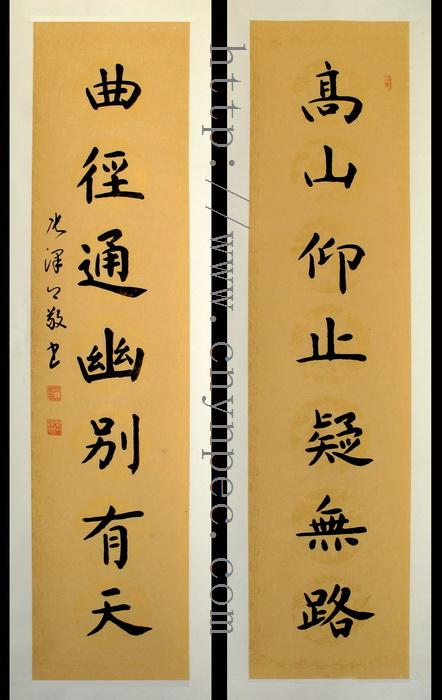 高山仰止疑無路
曲徑通幽別有天
http://www.cnynpec.com